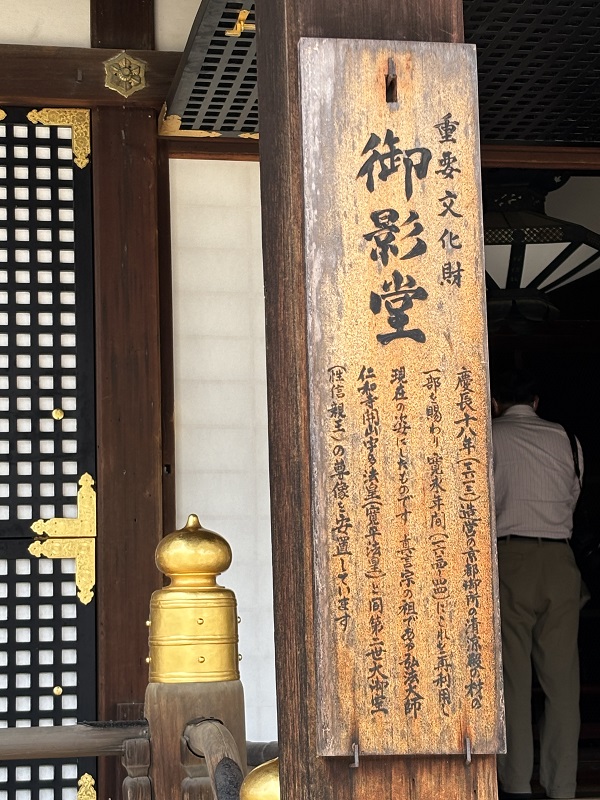 重要文化財
御影堂
慶長十八年(一六一三)造営の京都御所の清涼殿の材の
一部を賜わり、寛永年間(一六二四~四四)にこれを再利用し
現在の姿にしたものです 真言宗の祖である弘法大師
仁和寺開山宇多法皇(寛平法皇)と同第二世大御室
(性信親王)の尊像を安置しています